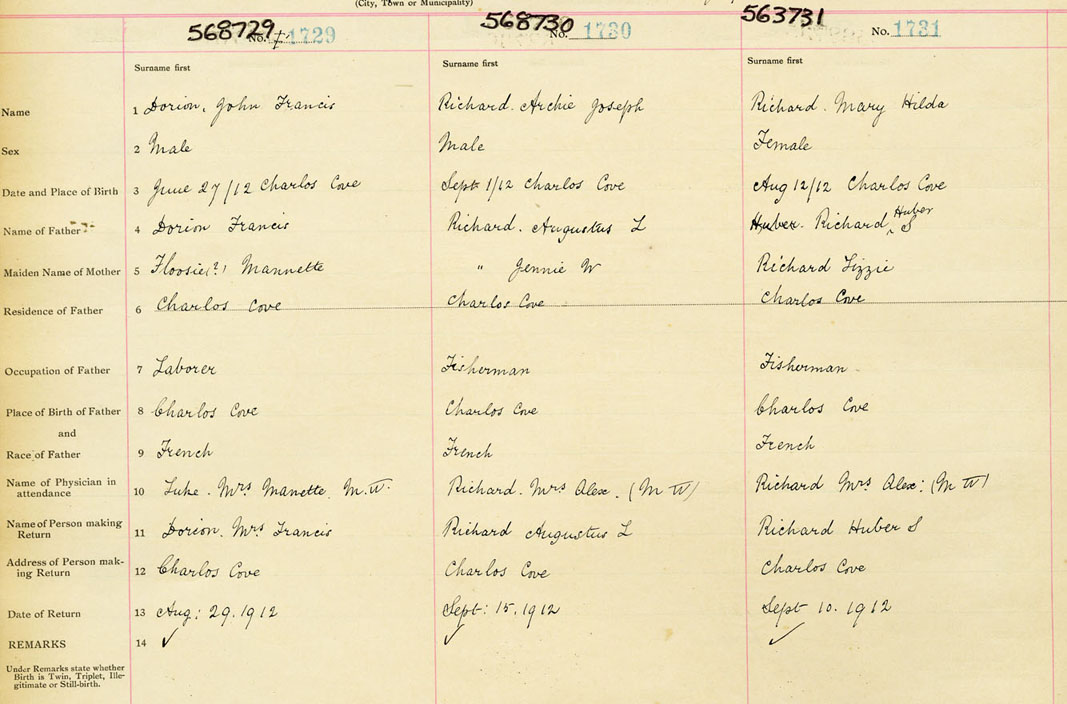 (City, Town or Municipality)
568729 568730 563731
No. 1729 No. 1730 No. 1731
Surname first Surname first Surname first
Name 1 Dorion, John Francis Richard. Archie Joseph Richard. Mary Hilda
Sex 2 Male Male Female
Date and Place of Birth 3 June 27/12 Charlos Cove Sept 1/12 Charlos Cove Aug 12/12 Charlos Cove
Huber
Name of Father 4 Dorion Francis Richard. Augustus L Huber. Richard, S
Maiden Name of Mother 5 Floosie(?) Mannette " Jennie W Richard Lizzie
Residence of Father 6 Charlos Cove Charlos Cove Charlos Cove
Occupation of Father 7 Laborer Fisherman Fisherman
Place of Birth of Father 8 Charlos Cove Charlos Cove Charlos Cove
and
Race of Father 9 French French French
Name of Physician in
attendance 10 Luke. Mrs Manette. M.W. Richard. Mrs Alex. (M W) Richard Mrs Alex: (M W)
Name of Person making
Return 11 Dorion. Mrs Francis Richard Augustus L Richard Huber S
Address of Person mak-
ing Return 12 Charlos Cove Charlos Cove Charlos Cove
Date of Return 13 Aug: 29. 1912 Sept: 15. 1912 Sept 10. 1912
REMARKS 14 ✓ ✓ ✓
Under Remarks state whether
Birth is Twin, Triplet, Ille-
gitimate or Still-birth.